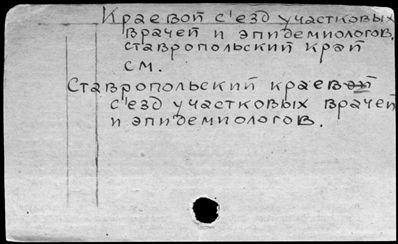 Краевой с'езд участковых
врачей и эпидемиологов.
ставропольский край
см.
Ставропольский краевой
с'езд участковых врачей
и эпидемиологов.